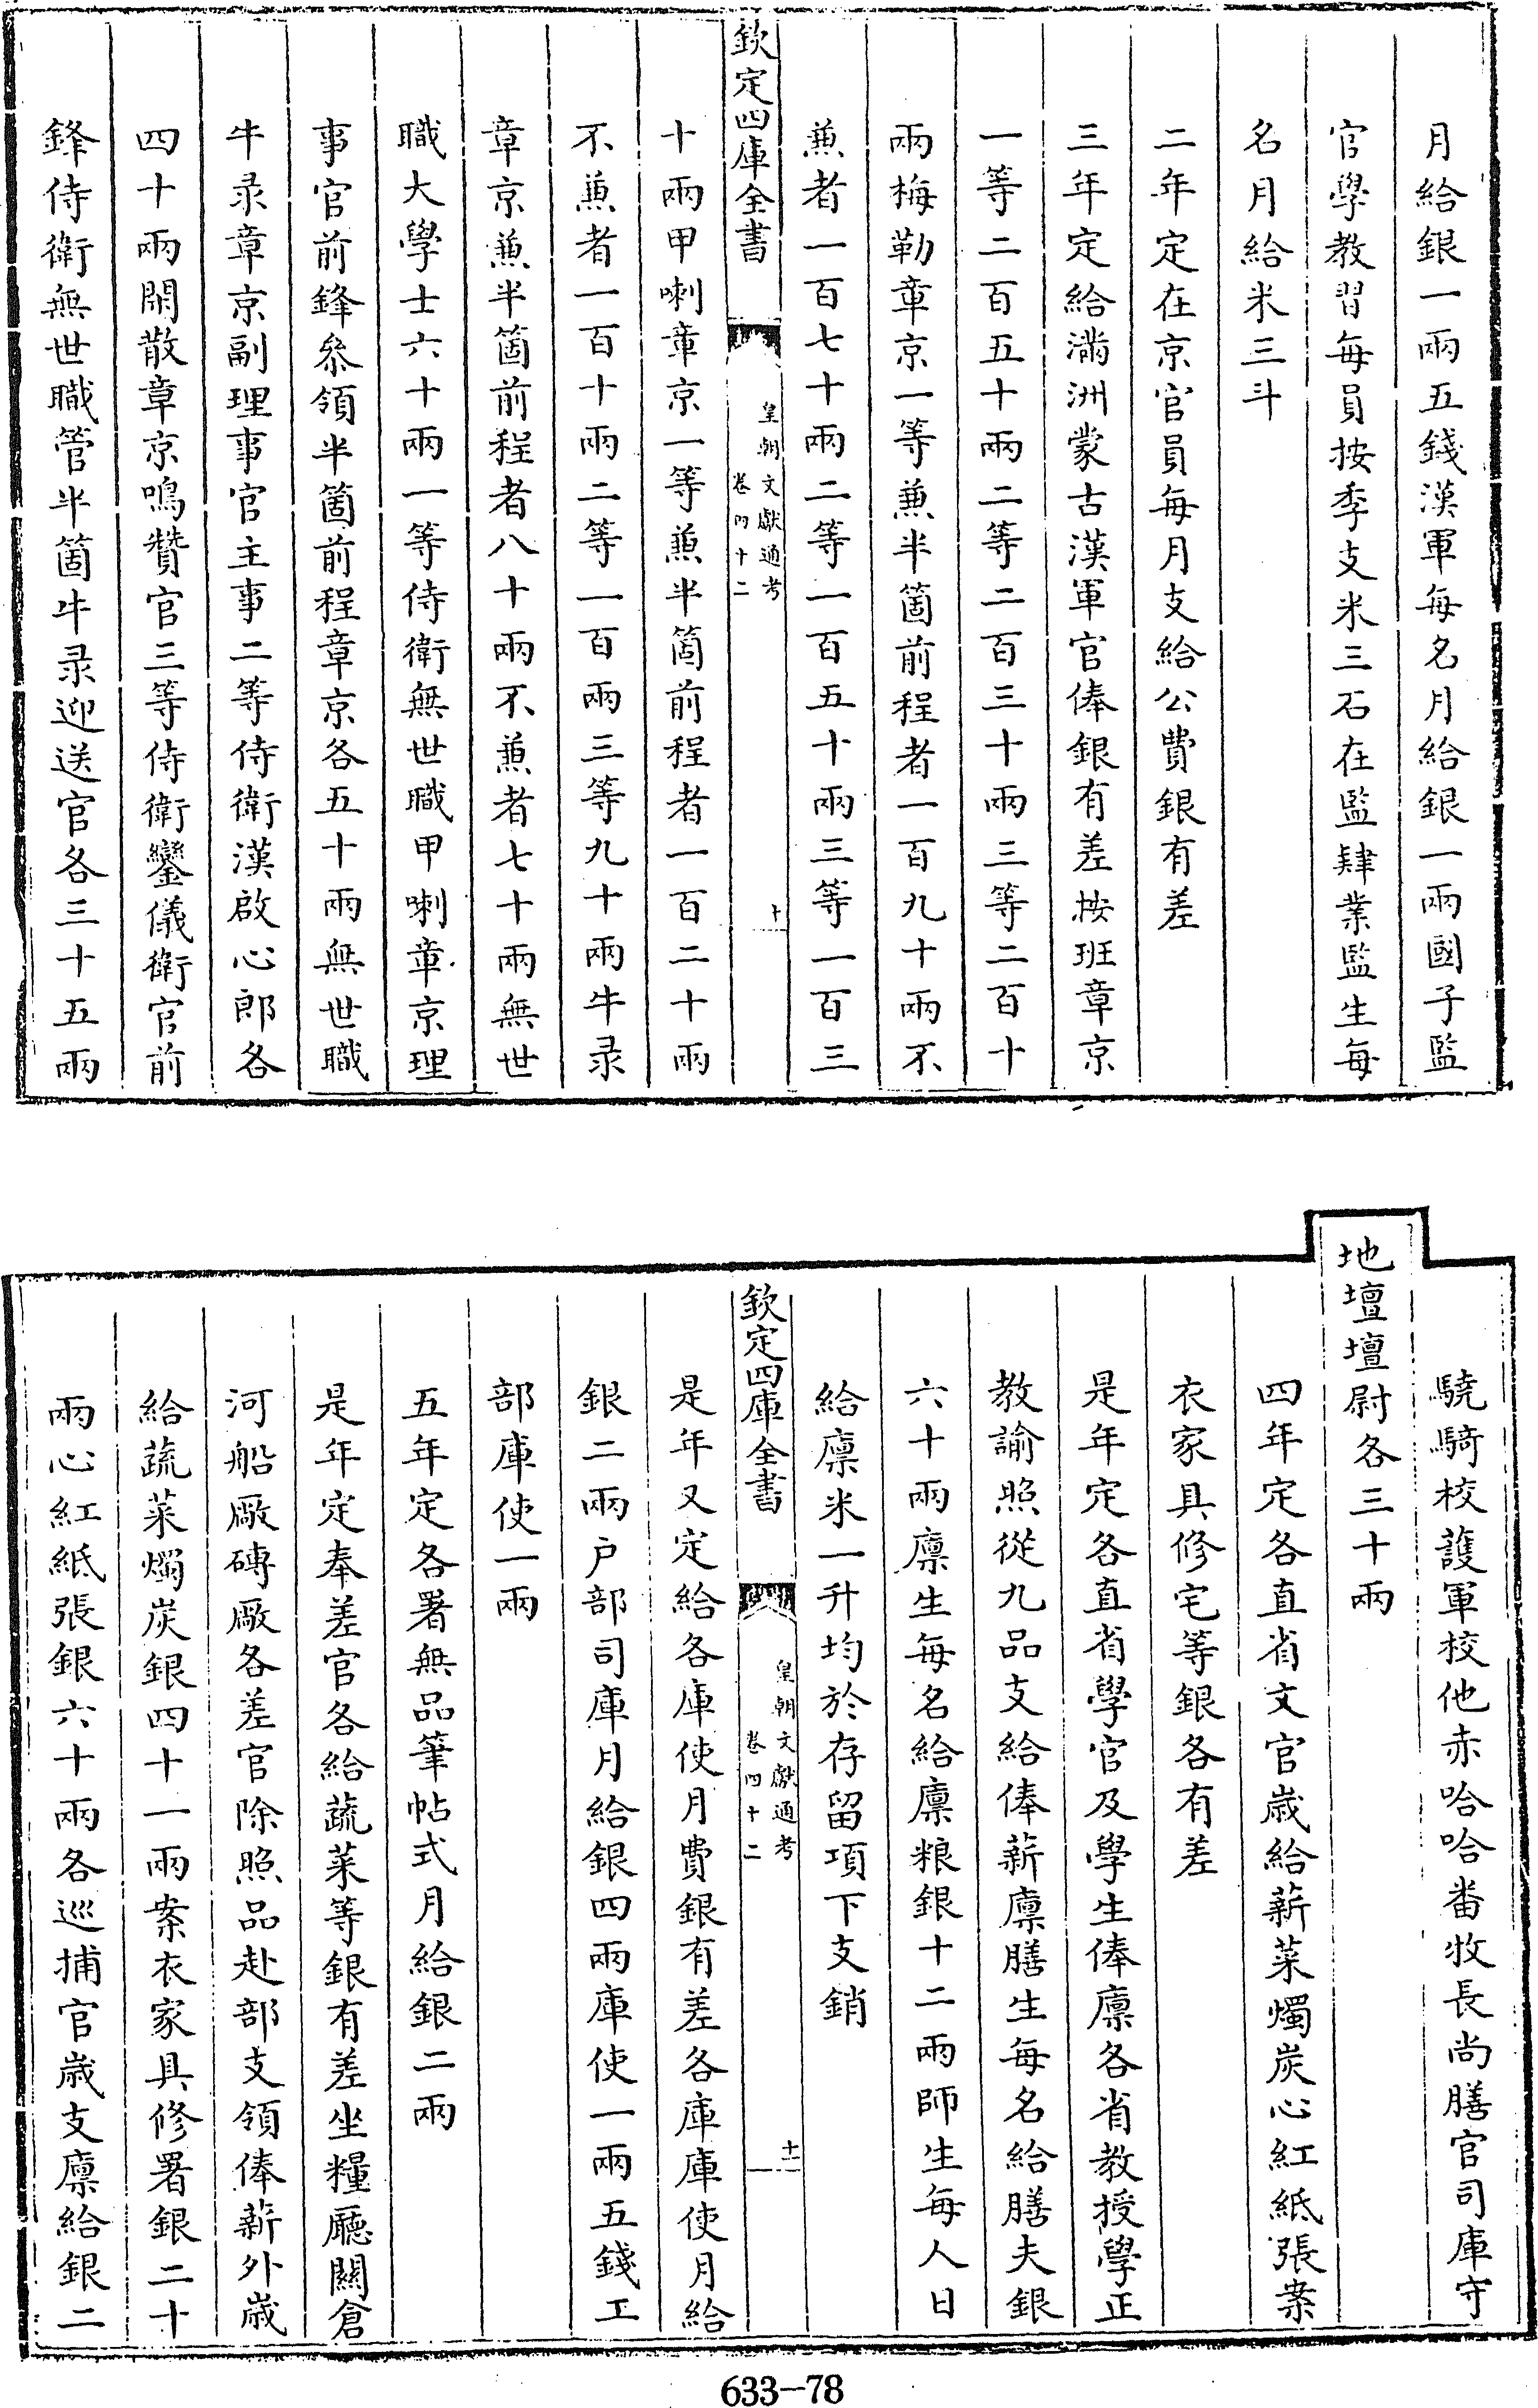 月給銀一兩五錢漢軍每名月給銀一兩國子監
官學教習每員按季支米三石在監肄業監生每
名月給米三斗
二年定在京官員每月支給公費銀有差
三年定給滿洲蒙古漢軍官俸銀有差按班章京
一等二百五十兩二等二百三十兩三等二百十
兩梅勒章京一等兼半箇前程者一百九十兩不
兼者一百七十兩二等一百五十兩三等一百三
欽定四庫全書
皇朝文獻通考
卷四十二
十
十兩甲喇章京一等兼半箇前程者一百二十兩
不兼者一百十兩二等一百兩三等九十兩牛录
章京兼半箇前程者八十兩不兼者七十兩無世
職大學士六十兩一等侍衛無世職甲喇章京理
事官前鋒叅領半箇前程章京各五十兩無世職
牛录章京副理事官主事二等侍衛漢啟心郎各
四十兩閒散章京鳴贊官三等侍衛鑾儀衛官前
鋒侍衛無世職管半箇牛录迎送官各三十五兩
驍騎校護軍校他赤哈哈番牧長尚膳官司庫守
地壇壇尉各三十兩
四年定各直省文官歲給薪菜燭炭心紅紙張案
衣家具修宅等銀各有差
是年定各直省學官及學生俸廪各省教授學正
教諭照從九品支給俸薪廪膳生每名給膳夫銀
六十兩廪生每名給廪粮銀十二兩師生每人日
給廪米一升均於存留項下支銷
欽定四庫全書
皇朝文獻通考
卷四十二
十一
是年又定給各庫使月費銀有差各庫庫使月給
銀二兩户部司庫月給銀四兩庫使一兩五錢工
部庫使一兩
五年定各署無品筆帖式月給銀二兩
是年定奉差官各給蔬菜等銀有差坐糧廳關倉
河船厰磚厰各差官除照品赴部支領俸薪外歲
給蔬菜燭炭銀四十一兩案衣家具修署銀二十
兩心紅紙張銀六十兩各巡捕官歲支廪給銀二
633-78